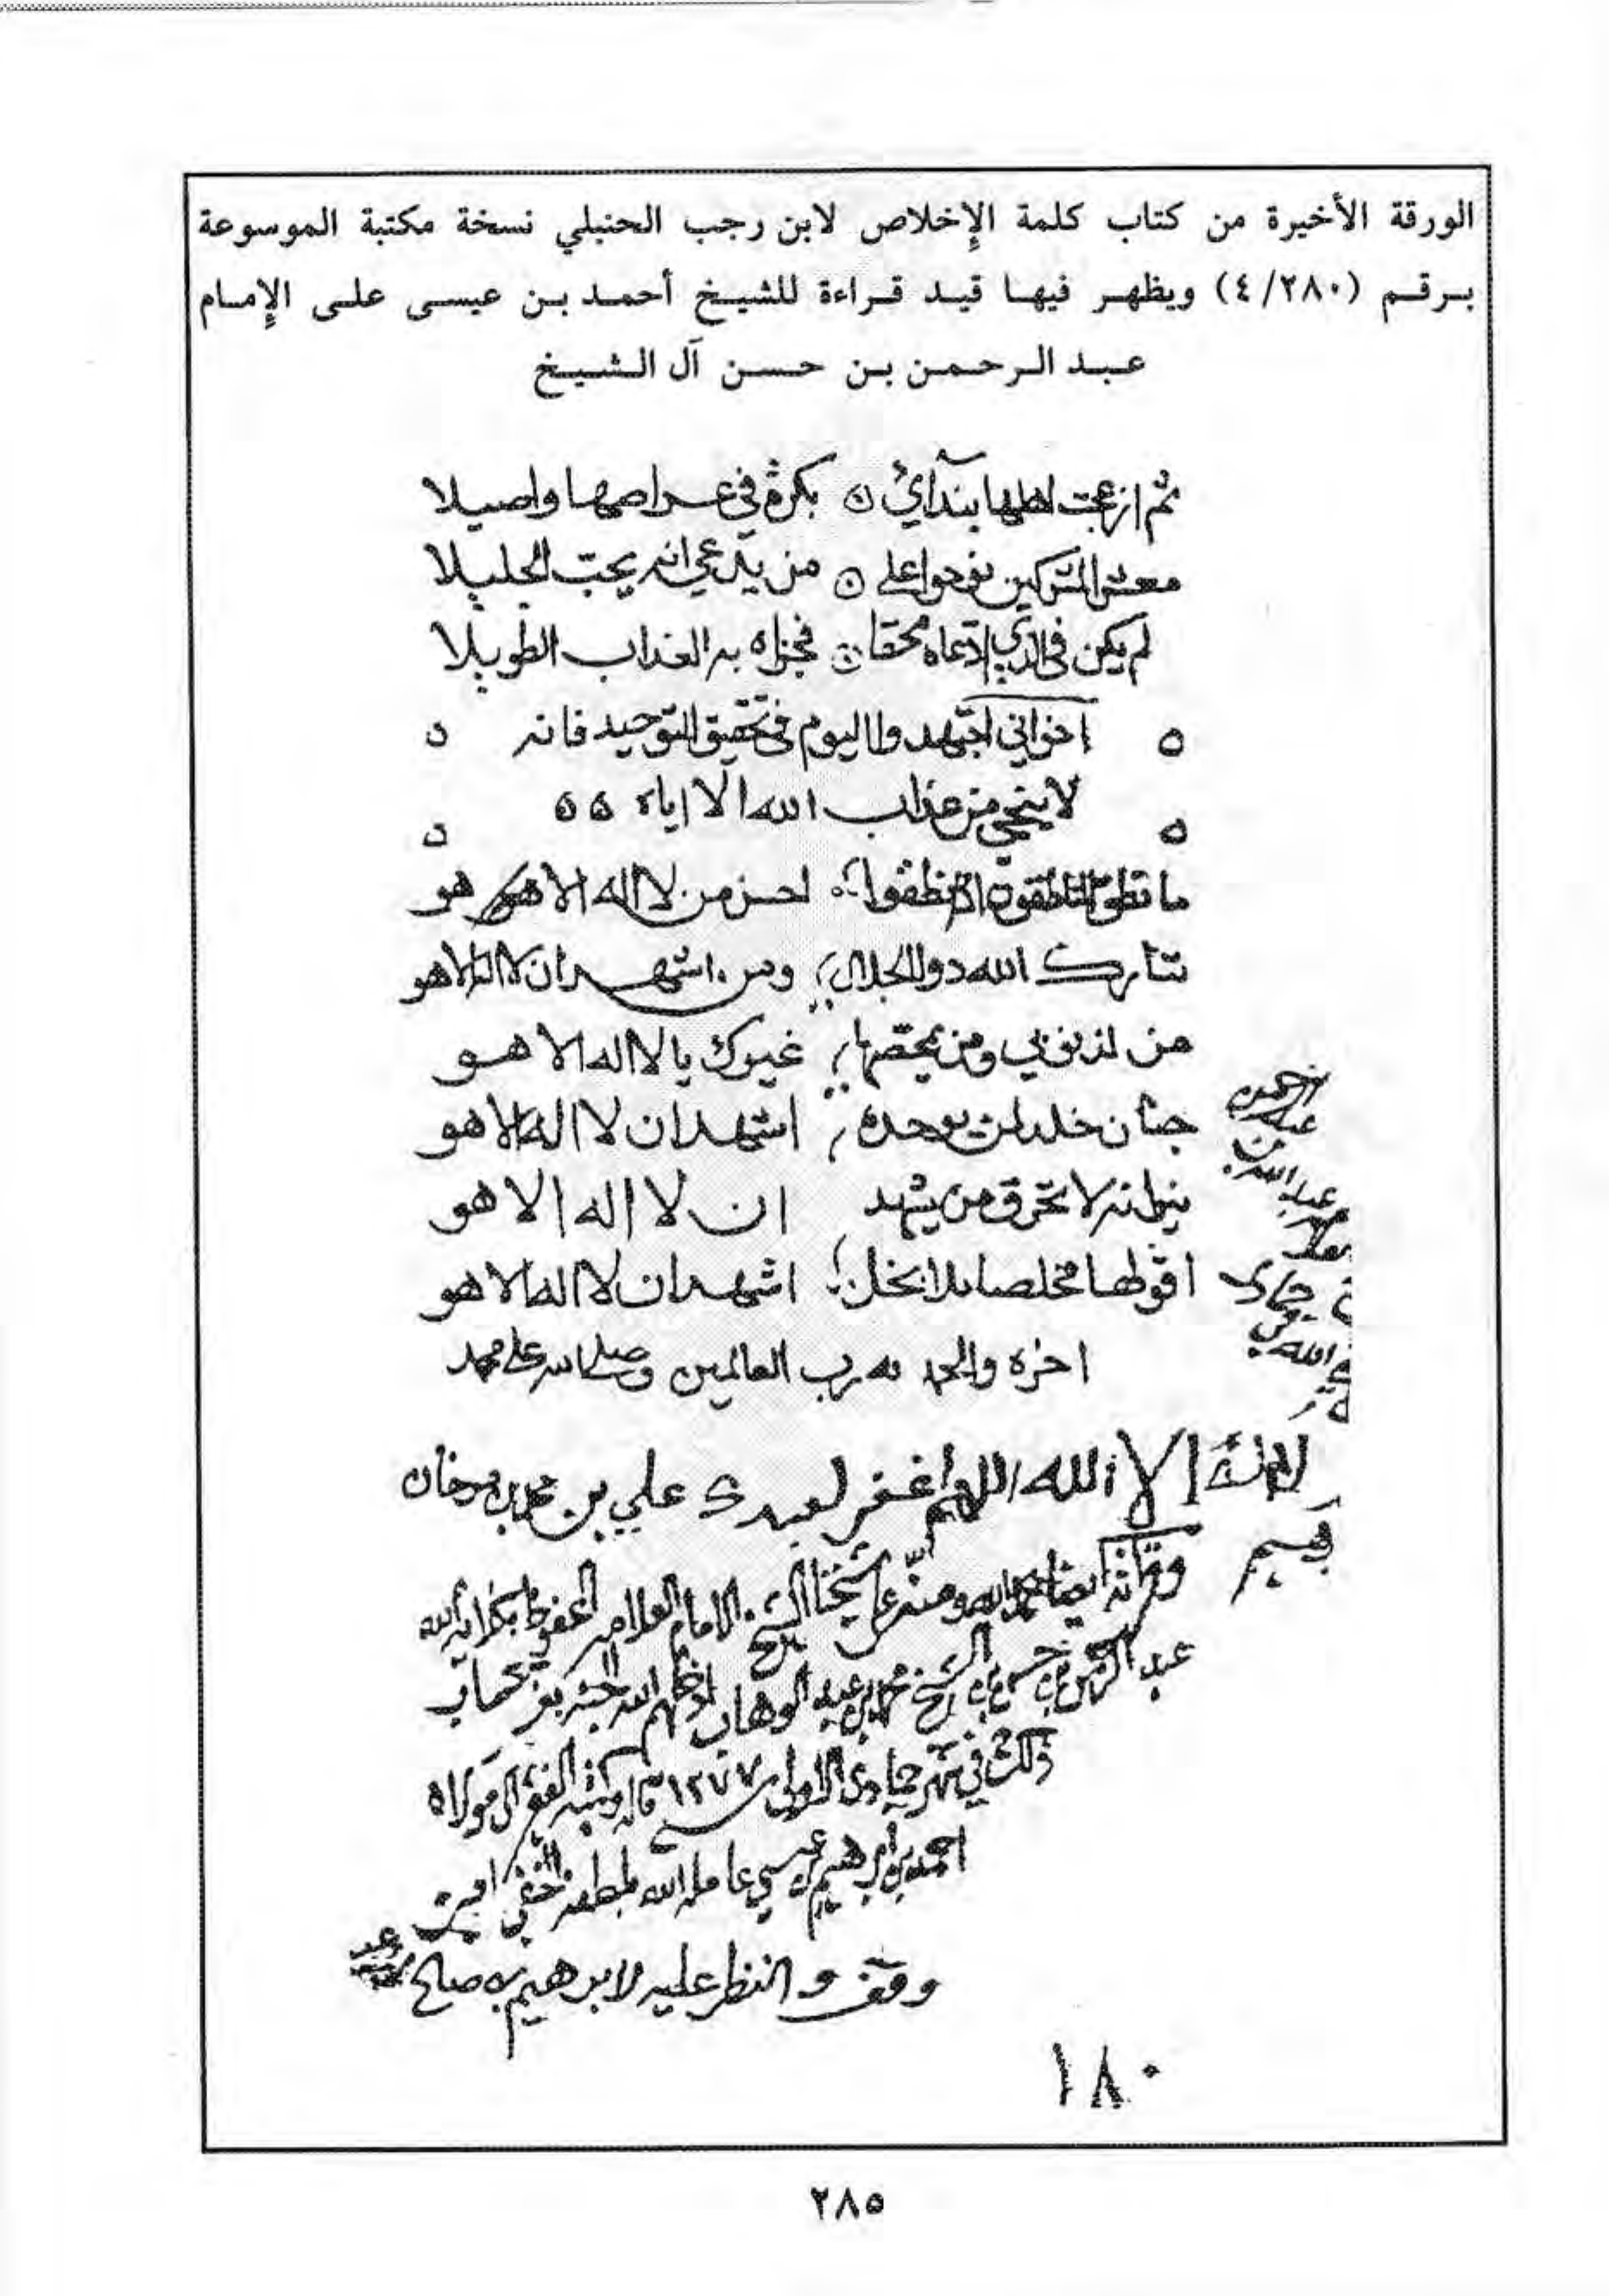 الورقة الأخيرة من كتاب كلمة الإخلاص لابن رجب الحنبلي نسخة مكتبة الموسوعة
برقم (٤/٢٨٠) ويظهر فيها قيد قراءة للشيخ أحمد بن عيسى على الإمام
عبد الرحمن بن حسن آل الشيخ
ثم ازعجت اهلها بندآئي بكرة في عراصها واصيلا
معشر المشركين نوحوا على من يدعي انه يحب الجليلا
لم يكن في الذي ادعاه محقا فجزاه به العذاب الطويلا
اخواني اجتهدوا اليوم في تحقيق التوحيد فانه
لا ينجي من عذاب الله الا اياه
ما نطق الناطقون اذ نطقوا احسن من لا اله الا هو هو
تبارك الله ذوالجلال ومن اشهد ان لا اله الا هو
من لذنوبي ومن يمحصها غيرك يا لا اله الا هو
جنان خلد لمن يوحده اشهد ان لا اله الا هو
نيرانه لا تحرق من يشهد ان لا اله الا هو
اقولها مخلصا بلا بخل اشهد ان لا اله الا هو
اخره والحمد لله رب العالمين وصلى الله على محمد
الرحمن
عبد
بن
عبد الله
جماد
الله
لا اله الا الله اللهم اغفر لعبدك علي بن محمد بن
وقرأته ايضا بحمد الله ومنه على شيخنا الشيخ الامام العلامه
عبد الرحمن بن حسن بن الشيخ محمد بن عبد الوهاب ادخلهم الله الجنة بغير حساب
ذلك في شهر جمادى الاولى سنة ١٢٧٧ قاله وكتبه الفقير الى مولاه
احمد بن ابرهيم بن عيسى عامله الله بلطفه الخفي امين
وقف والنظر عليه لابرهيم بن صالح
١٨٠
٢٨٥